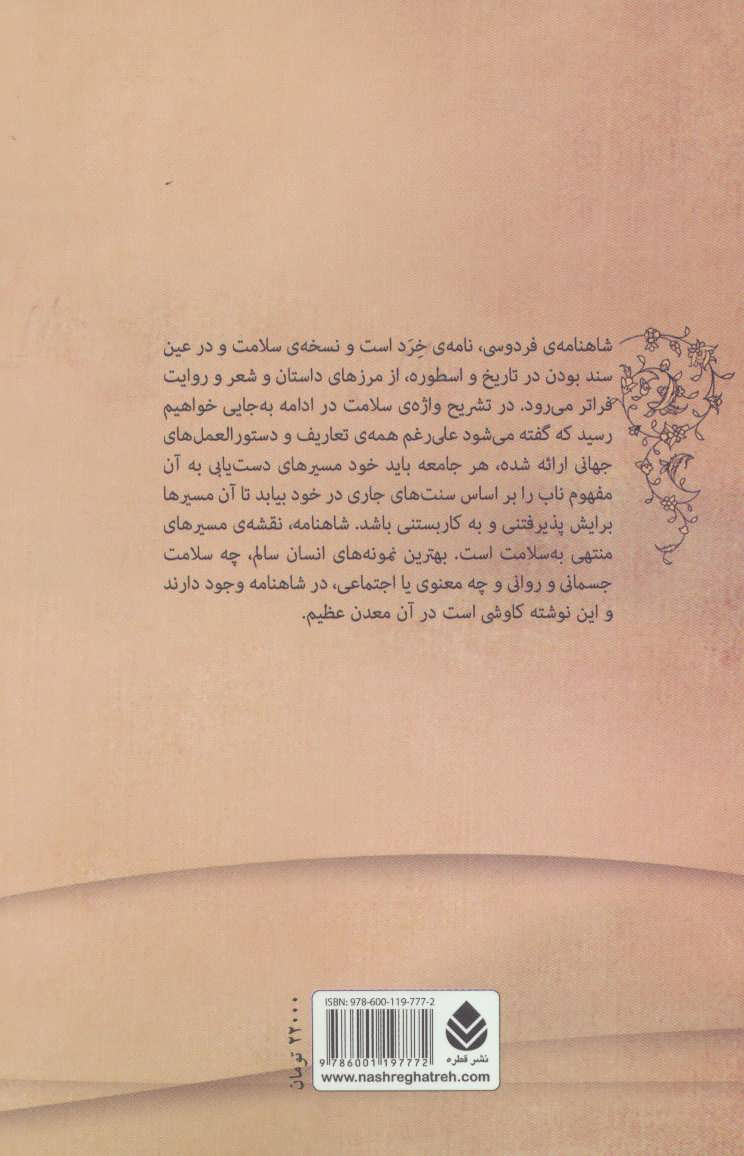 شاهنامه‌ی فردوسی، نامه‌ی خِرَد است و نسخه‌ی سلامت و در عین
سند بودن در تاریخ و اسطوره، از مرزهای داستان و شعر و روایت
فراتر می‌رود. در تشریح واژه‌ی سلامت در ادامه به‌جایی خواهیم
رسید که گفته می‌شود علی‌رغم همه‌ی تعاریف و دستورالعمل‌های
جهانی ارائه شده، هر جامعه باید خود مسیرهای دست‌یابی به آن
مفهوم ناب را بر اساس سنت‌های جاری در خود بیابد تا آن مسیرها
برایش پذیرفتنی و به کاربستنی باشد. شاهنامه، نقشه‌ی مسیرهای
منتهی به‌سلامت است. بهترین نمونه‌های انسان سالم، چه سلامت
جسمانی و روانی و چه معنوی یا اجتماعی، در شاهنامه وجود دارند
و این نوشته کاوشی است در آن معدن عظیم.
۲۲۰۰۰ تومان
ISBN: 978-600-119-777-2
9 786001 197772
نشر قطره
www.nashreghatreh.com